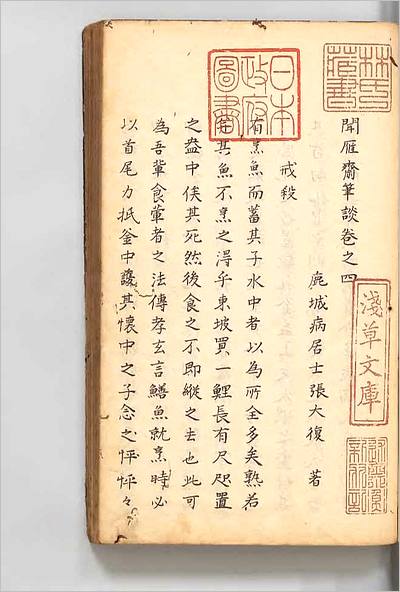 林氏藏書
日本政府圖書
聞雁齋筆談卷之四
淺草文庫
鹿城病居士張大復 著
戒殺
有烹魚而蓄其子水中者以為所全多矣熟若
其魚不烹之淂乎東坡買一鯉長有尺咫置
之盎中俟其死然後食之不即縱之去也此可
為吾輩食葷者之法傳孝玄言鱔魚就烹時必
以首尾力抵釜中護其懷中之子念之怦怦々